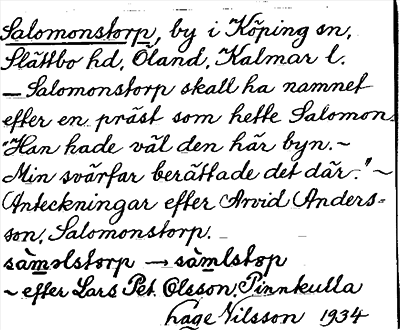 Salomonstorp, by i Köping sn,
Slättbo hd, Öland, Kalmar l.
— Salomonstorp skall ha namnet
efter en präst som hette Salomon.
"Han hade väl den här byn. —
Min svärfar berättade det där." ~
Anteckningar efter Arvid Anders=
son, Salomonstorp.
sàmolstorp → sàmlstop
~ efter Lars Pet. Olsson, Pinnkulla
Hage Nilsson 1934